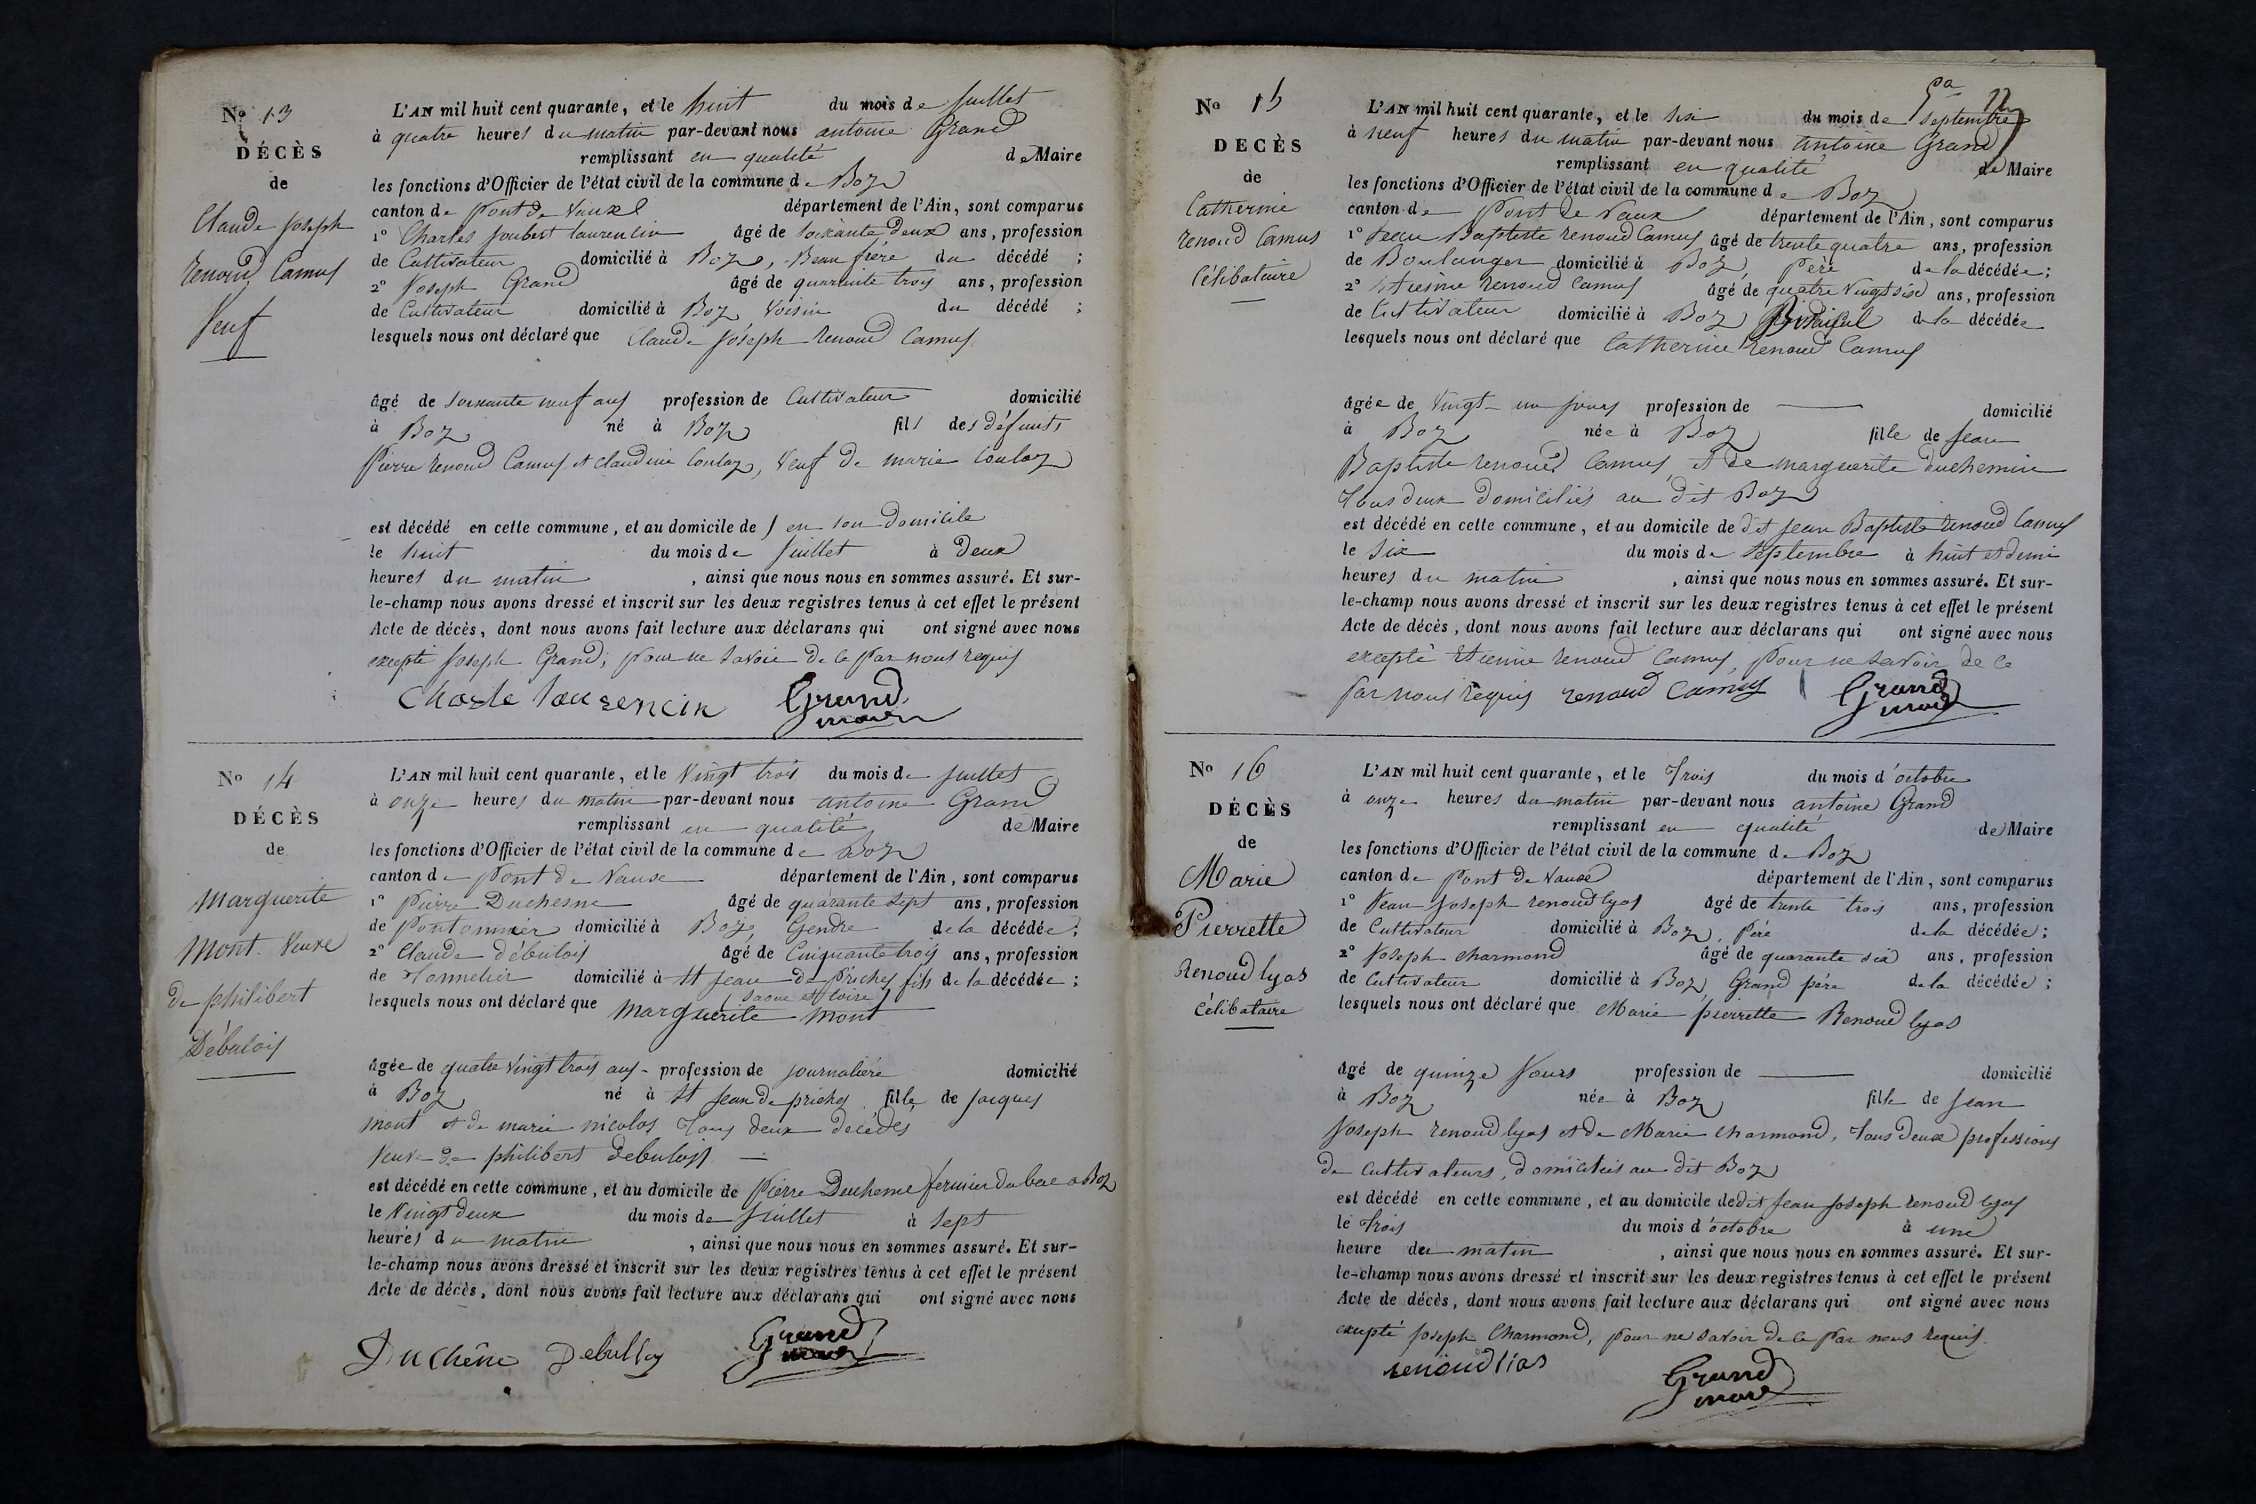 No 13
DÉCÈS
de
Claude Joseph
Renoud Camus
Veuf
L'AN mil huit cent quarante, et le huit du mois de Juillet
à quatre heures du matin par-devant nous antoine Grand
remplissant en qualité de Maire
les fonctions d'Officier de l'état civil de la commune de Boz
canton de Pont de Vaux département de l'Ain, sont comparus
1º Charles Joubert laurencin âgé de soixante deux ans, profession
de Cultivateur domicilié à Boz, Beau frère du décédé ;
2º Joseph Grand âgé de quarante trois ans, profession
de Cultivateur domicilié à Boz Voisin du décédé ;
lesquels nous ont déclaré que Claude Joseph Renoud Camus
âgé de soixante neuf ans profession de Cultivateur domicilié
à Boz né à Boz fils des défunts
Pierre renoud Camus et Claudine Coulaz, Veuf de marie Coulaz
est décédé en cette commune, et au domicile de / en son domicile
le huit du mois de Juillet à Deux
heures du matin , ainsi que nous nous en sommes assuré. Et sur-
le-champ nous avons dressé et inscrit sur les deux registres tenus à cet effet le présent
Acte de décès, dont nous avons fait lecture aux déclarans qui ont signé avec nous
excepté Joseph Grand, pour ne savoir de ce par nous requis
Charle laurencin Grand
maire
No 14
DÉCÈS
de
Marguerite
Mont Veuve
de philibert
Débulois
L'AN mil huit cent quarante, et le Vingt trois du mois de Juillet
à onze heures du matin par-devant nous antoine Grand
remplissant en qualité de Maire
les fonctions d'Officier de l'état civil de la commune de Boz
canton de Pont de Vaux département de l'Ain, sont comparus
1º Pierre Duchesne âgé de quarante sept ans, profession
de Pontonnier domicilié à Boz, Gendre de la décédée ;
2º Claude débulois âgé de Cinquante trois ans, profession
de Tonnelier domicilié à St Jean de Priches fils de la décédée ;
(Saone et Loire)
lesquels nous ont déclaré que Marguerite Mont
âgée de quatre Vingt trois ans profession de journalière domicilié
à Boz né à St Jean de priches fille de Jacques
mont et de marie nicolas Tous deux décédés
Veuve de philibert Debulois
est décédé en cette commune, et au domicile de Pierre Duchesne fermier du bac à Boz
le Vingt deux du mois de Juillet à Sept
heures du matin , ainsi que nous nous en sommes assuré. Et sur-
le-champ nous avons dressé et inscrit sur les deux registres tenus à cet effet le présent
Acte de décès, dont nous avons fait lecture aux déclarans qui ont signé avec nous
Duchêne Debulloy Grand
maire
No 15
DÉCÈS
de
Catherine
renoud Camus
Célibataire
L'AN mil huit cent quarante, et le six du mois de Septembre
à neuf heures du matin par-devant nous antoine Grand
remplissant en qualité de Maire
les fonctions d'Officier de l'état civil de la commune de Boz
canton de Pont de Vaux département de l'Ain, sont comparus
1º Jean Baptiste renoud Camus âgé de trente quatre ans, profession
de Boulanger domicilié à Boz, Père de la décédée ;
2º Etienne renoud Camus âgé de quatre Vingt six ans, profession
de Cultivateur domicilié à Boz Bisaïeul de la décédée
lesquels nous ont déclaré que Catherine renoud Camus
âgée de Vingt un jours profession de domicilié
à Boz née à Boz fille de Jean
Baptiste renoud Camus et de marguerite duchemin
Tous deux domiciliés au dit Boz
est décédé en cette commune, et au domicile de dit Jean Baptiste renoud Camus
le six du mois de septembre à huit et demi
heures du matin , ainsi que nous nous en sommes assuré. Et sur-
le-champ nous avons dressé et inscrit sur les deux registres tenus à cet effet le présent
Acte de décès, dont nous avons fait lecture aux déclarans qui ont signé avec nous
excepté Etienne renoud Camus, pour ne savoir de ce
par nous requis renoud Camus Grand
maire
No 16
DÉCÈS
de
Marie
Pierrette
Renoud lyas
Célibataire
L'AN mil huit cent quarante, et le Trois du mois d'octobre
à onze heures du matin par-devant nous antoine Grand
remplissant en qualité de Maire
les fonctions d'Officier de l'état civil de la commune de Boz
canton de Pont de Vaux département de l'Ain, sont comparus
1º Jean Joseph renoud lyas âgé de trente trois ans, profession
de Cultivateur domicilié à Boz, Père de la décédée ;
2º Joseph Charmond âgé de quarante six ans, profession
de Cultivateur domicilié à Boz Grand père de la décédée ;
lesquels nous ont déclaré que Marie pierrette Renoud lyas
âgé de quinze Jours profession de domicilié
à Boz née à Boz fille de Jean
Joseph renoud lyas et de Marie Charmond, Tous deux professions
de Cultivateurs, domiciliés au dit Boz
est décédé en cette commune, et au domicile dedit Jean Joseph renoud lyas
le Trois du mois d'octobre à une
heure du matin , ainsi que nous nous en sommes assuré. Et sur-
le-champ nous avons dressé et inscrit sur les deux registres tenus à cet effet le présent
Acte de décès, dont nous avons fait lecture aux déclarans qui ont signé avec nous
excepté Joseph Charmond, pour ne savoir de ce par nous requis.
renoud lias Grand
maire